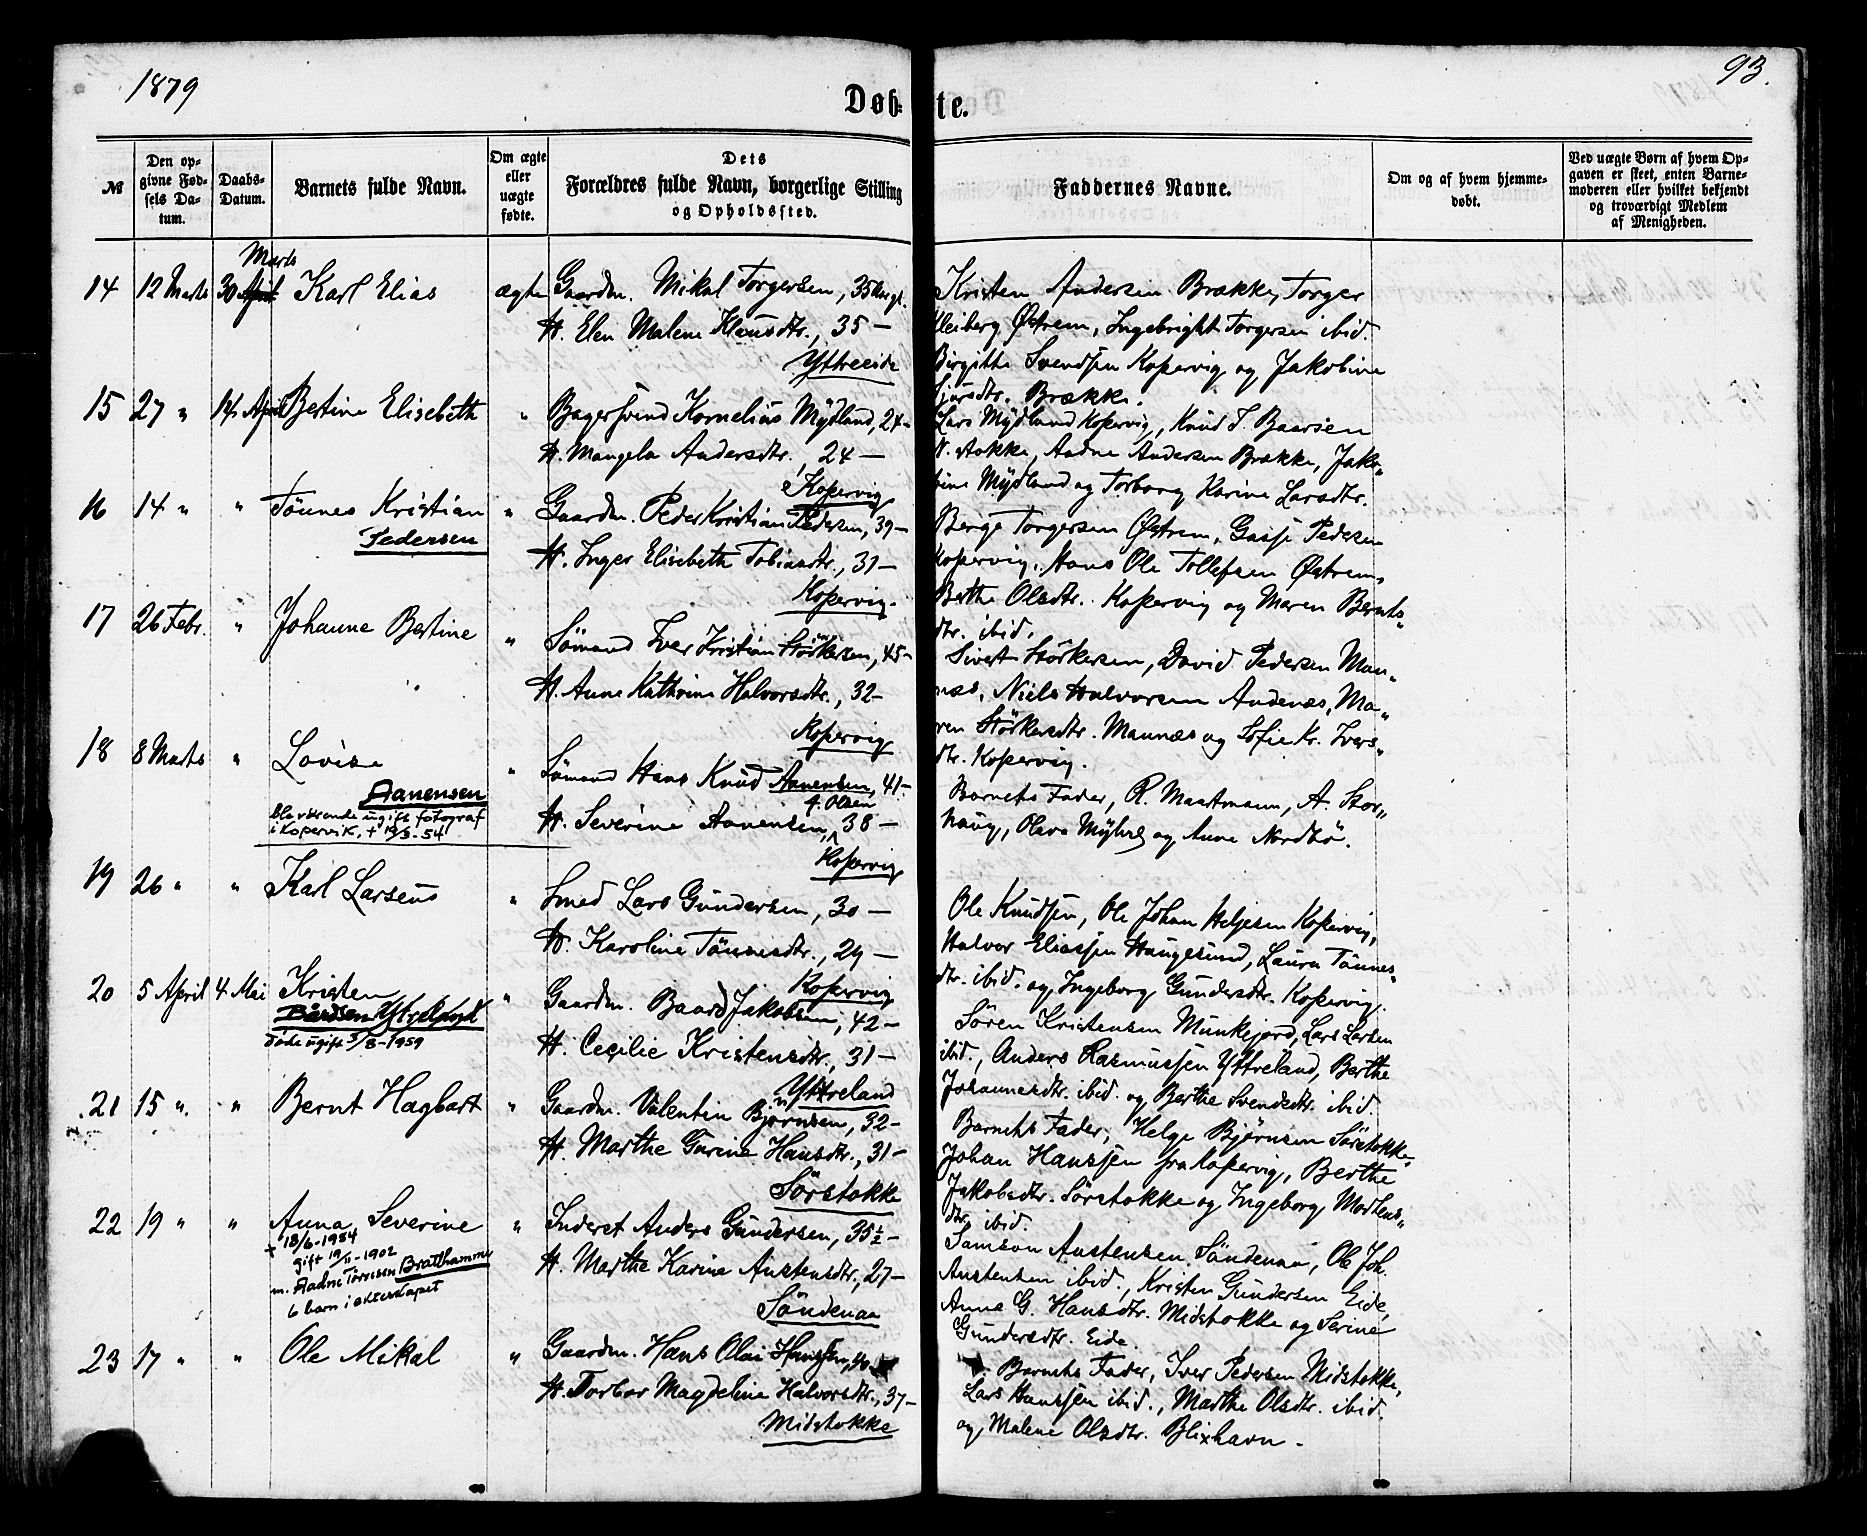 1879
93.
Døbte.
№
Den opgivne Fødsels Datum.
Daabs-Datum.
Barnets fulde Navn.
Om ægte eller uægte fødte.
Dets Forældres fulde Navn, borgerlige Stilling og Opholdssted.
Faddernes Navne.
Om og af hvem hjemmedøbt.
Ved uægte Børn af hvem Opgaven er skeet, enten Barnemoderen eller hvilket bekjendt og troværdigt Medlem af Menigheden.
14 12 Marts 30 April Marts Karl Elias ægte Gaardm. Mikal Torgersen, 35
H. Elen Malene Klausdtr., 35 —
Yttreeide
Kristen Andersen Brække, Torger
Kleiberg Østrem, Ingebright Torgersen ibid.
Birgitte Svendsen Kopervig og Jakobine
Sjursdtr. Brække.
15 27 " 14 April Bertine Elisebeth " Bagersvend Kornelius Mydland, 24 —
H. Mangela Andersdtr., 24 —
Kopervig
Lars Mydland Kopervig, Knud T. Baarsen
N. Stokke, Aadne Andersen Brække, Jako-
bine Mydland og Torborg Karine Larsdtr.
16 14 " " Tönnes Kristian " Gaardm. Peder Kristian Pedersen, 39 —
Pedersen
H. Inger Elisebeth Tobiasdtr., 31 —
Kopervig.
Berge Torgersen Østrem, Gasse Pedersen
Kopervig, Hans Ole Tollefsen Østrem,
Berthe Olsdtr. Kopervig og Maren Bernts-
dtr. ibid.
17 26 Febr. " Johanne Bertine " Sömand Iver Kristian Störkersen, 45 —
H. Anne Kathrine Halvorsdtr., 32 —
Kopervig
Sivert Störkersen, David Pedersen Mau-
næs, Niels Halvorsen Andenæs, Ma-
ren Störkersdtr. Maunæs og Sofie Kr. Ivers-
dtr. Kopervig.
18 8 Marts " Lovise " Sömand Hans Knud Aanensen, 41 —
Aanensen
f. Olsen
H. Severine Aanensen, 38 —
Kopervig
ugift fotograf
i Kopervik, +
Barnets Fader, R. Maartmann, A. Stor-
haug, Olava Myhre og Anne Nordbö.
19 26 " " Karl Larseus " Smed Lars Gundersen, 30 —
H. Karoline Tönnesdtr., 29 —
Kopervig
Ole Knudsen, Ole Johan Heljesen Kopervig,
Halvor Eliassen Haugesund, Laura Tönnes-
dtr. ibid. og Ingeborg Gundersdtr. Kopervig.
20 5 April 4 Mai Kristen " Gaardm. Baard Jakobsen, 42 —
Bårdsen Ytreland
Döde ugift 5/8-1959
H. Cecilie Kristensdtr., 31 —
Yttreland
Sören Kristensen Munkejord, Lars Larsen
ibid., Anders Rasmussen Yttreland, Berthe
Johannesdtr. ibid. og Berthe Svendsdtr. ibid.
21 15 " " Bernt Hagbart " Gaardm. Valentin Bjørnsen, 32 —
H. Marthe Gurine Hansdtr., 31 —
Sörstokke
Barnets Fader, Helge Bjørnsen Sörstokke,
Johan Hanssen fra Kopervig, Berthe
Jakobsdtr. Sörstokke og Ingeborg Mortens-
dtr. ibid.
22 19 " " Anna Severine " Inderst Anders Gundersen, 35½ —
+ 18/6-1954
gift 19/11-1902
m. Aadne Tørresen Bratthammer
6 barn i ekteskapet
H. Marthe Karine Austensdtr., 27 —
Söndenaa
Samson Austensen Söndenaa, Ole Joh.
Austensen ibid., Kristen Gundersen Eide,
Anna G. Hansdtr. Midstokke og Serine
Gundersdtr. Eide.
23 17 " " Ole Mikal " Gaardm. Hans Olai Hanssen, 40
H. Torbor Magdeline Halvorsdtr., 37 —
Midstokke
Barnets Fader, Iver Pedersen Midstokke,
Lars Hanssen ibid., Marthe Olsdtr. ibid.
og Malene Olsdtr. Blixhavn.